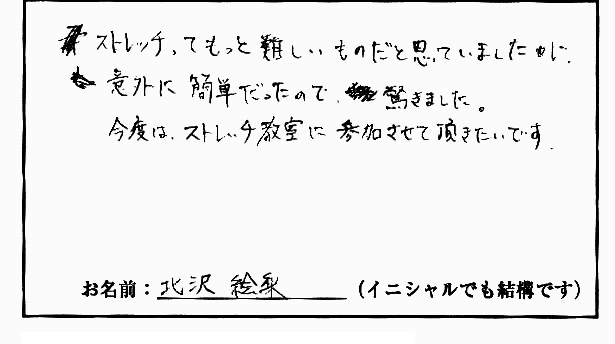 ストレッチってもっと難しいものだと思っていましたが、
意外に簡単だったので、驚きました。
今度は、ストレッチ教室に参加させて頂きたいです。
お名前：北沢 絵梨 （イニシャルでも結構です）